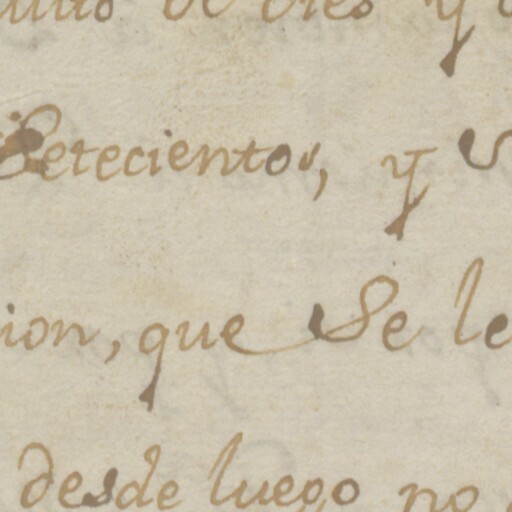 de dies y
Setecientos, y
ion, que Se le
desde luego no